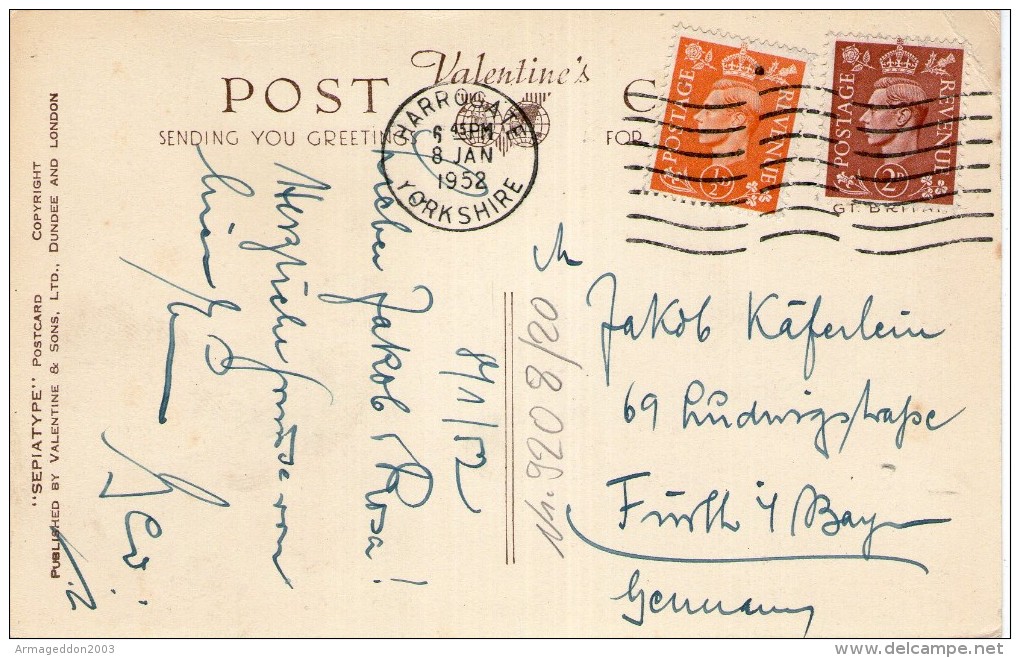 Valentine's
POST C
SENDING YOU GREETINGS FOR
HARROGATE
6 45PM
8 JAN
1952
YORKSHIRE
POSTAGE REVENUE
½D
POSTAGE REVENUE
2D
GT. BRITAI
"SEPIATYPE" POSTCARD COPYRIGHT
PUBLISHED BY VALENTINE & SONS, LTD., DUNDEE AND LONDON
8/1/52
Lieber Jakob & Rosa!
Herzliche Grüsse von
9208/20
Jakob Käferlein
69 Ludwigstraße
Fürth i/Bayern
Germany
Armageddon2003
www.delcampe.net